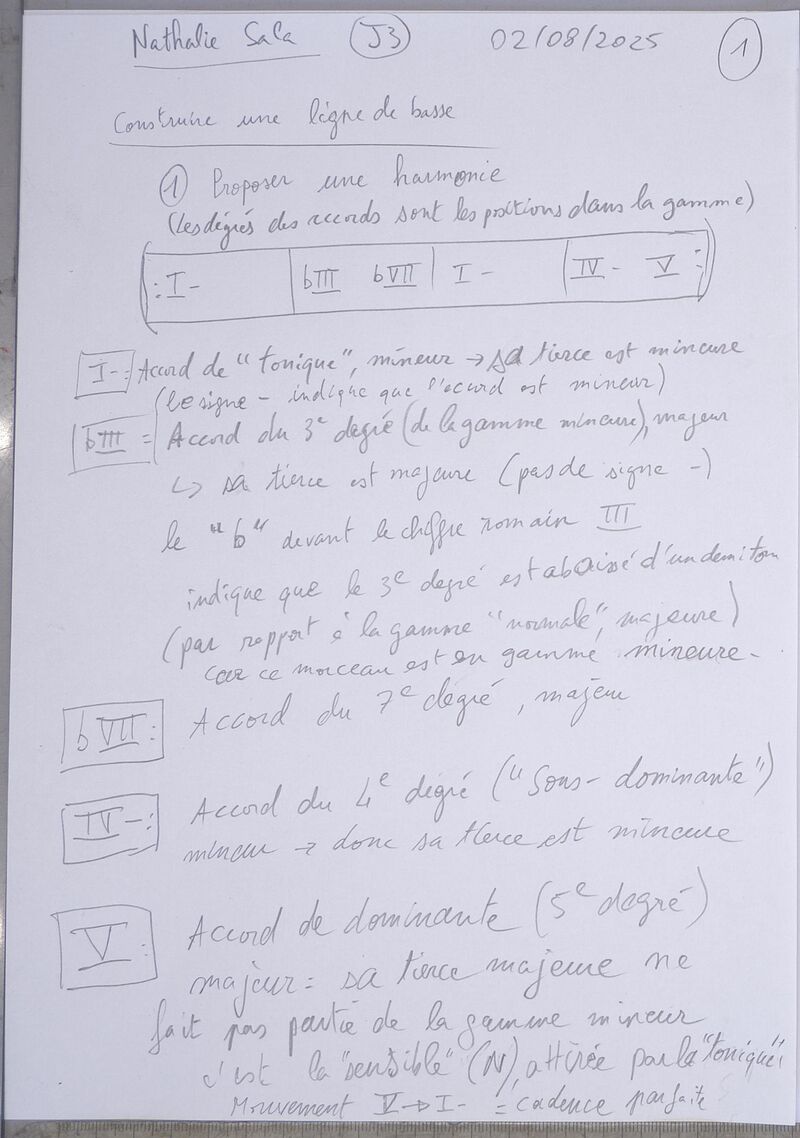 Nathalie Sala J3 02/08/2025 1
Construire une ligne de basse
1 Proposer une harmonie
(Les dégrés des accords sont les positions dans la gamme)
: I- | bIII bVII | I- | IV- V :
I-: Accord de "tonique", mineur → sa tierce est mineure
(le signe - indique que l'accord est mineur)
bIII = Accord du 3e degré (de la gamme mineure), majeur
↳ sa tierce est majeure (pas de signe -)
le "b" devant le chiffre romain III
indique que le 3e degré est abaissé d'un demi ton
(par rapport à la gamme "normale", majeure)
car ce morceau est en gamme mineure-
bVII: Accord du 7e degré, majeur
IV-: Accord du 4e dégré ("Sous-dominante")
mineur → donc sa tierce est mineure
V: Accord de dominante (5e degré)
majeur = sa tierce majeure ne
fait pas partie de la gamme mineur
c'est la "sensible" (N), attirée par la "tonique"
Mouvement V→I- = cadence parfaite